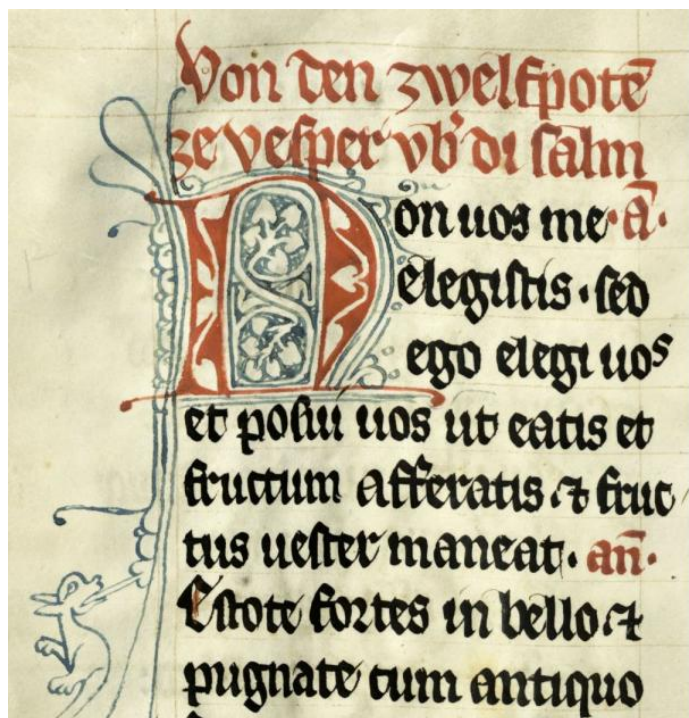 Von den zwelfpotē
ze vesper vb' di salm
Non uos me · ā ·
elegistis · sed
ego elegi uos
et posui uos ut eatis et
fructum afferatis · ⁊ fruc
tus uester maneat · an̄ ·
Estote fortes in bello · ⁊
pugnate cum antiquo